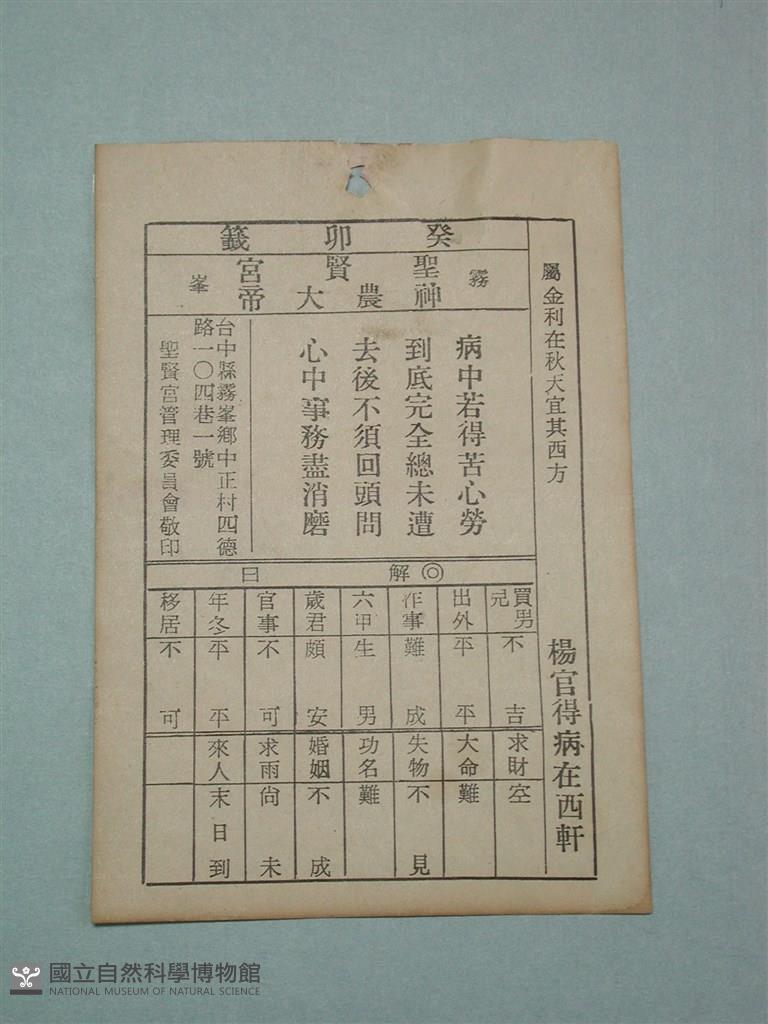 癸卯籤
霧
聖賢宮
神農大帝
峯
屬金利在秋天宜其西方
楊官得病在西軒
病中若得苦心勞
到底完全總未遭
去後不須回頭問
心中事務盡消磨
台中縣霧峯鄉中正村四德
路一〇四巷一號
聖賢宮管理委員會敬印
◎解曰
買男兒 不吉
出外 平平
作事 難成
六甲 生男
歲君 頗安
官事 不可
年冬 平平
移居 不可
求財 空
大命 難
失物 不見
功名 難
婚姻 不成
求雨 尚未
來人 末日到
國立自然科學博物館
NATIONAL MUSEUM OF NATURAL SCIENCE